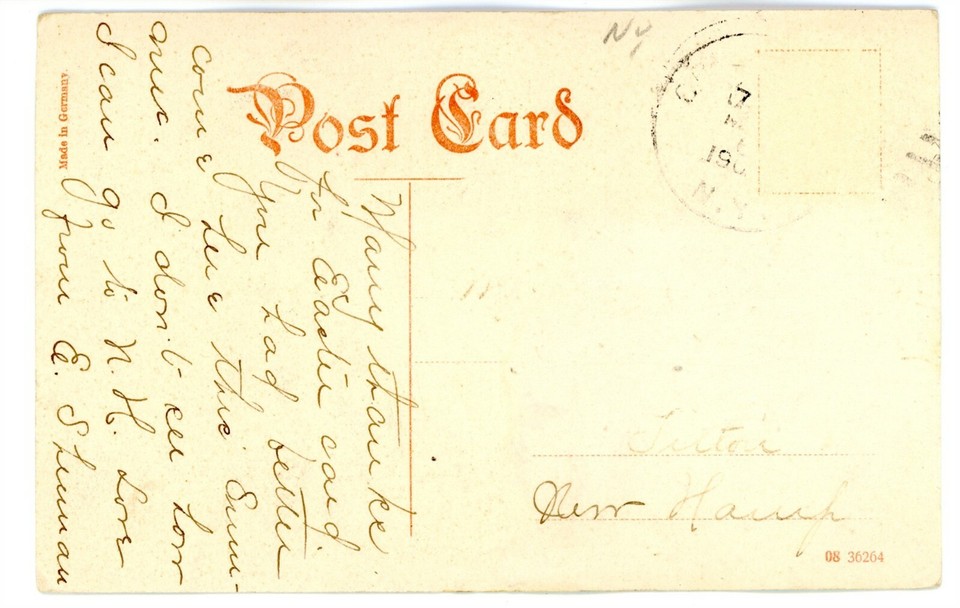 NY
Post Card
Made in Germany
C
5
190
N.Y.
Many thanks
for Easter card.
You had better
come here this Sum-
mer. I don't see how
I can go to N.H. Love
from E. Shuman
New Hamp
08 36264